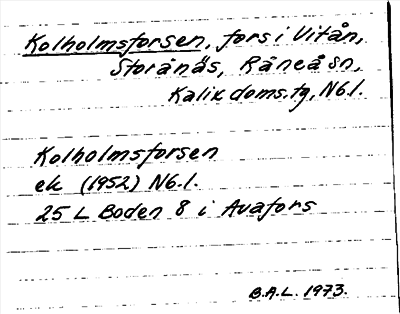 Kolholmsforsen, fors i Vitån,
Storånäs, Råneå sn,
Kalix doms.tg, Nb.l.
Kolholmsforsen
ek (1952) Nb.l.
25 L Boden 8 i Avafors
B.A.L. 1973.